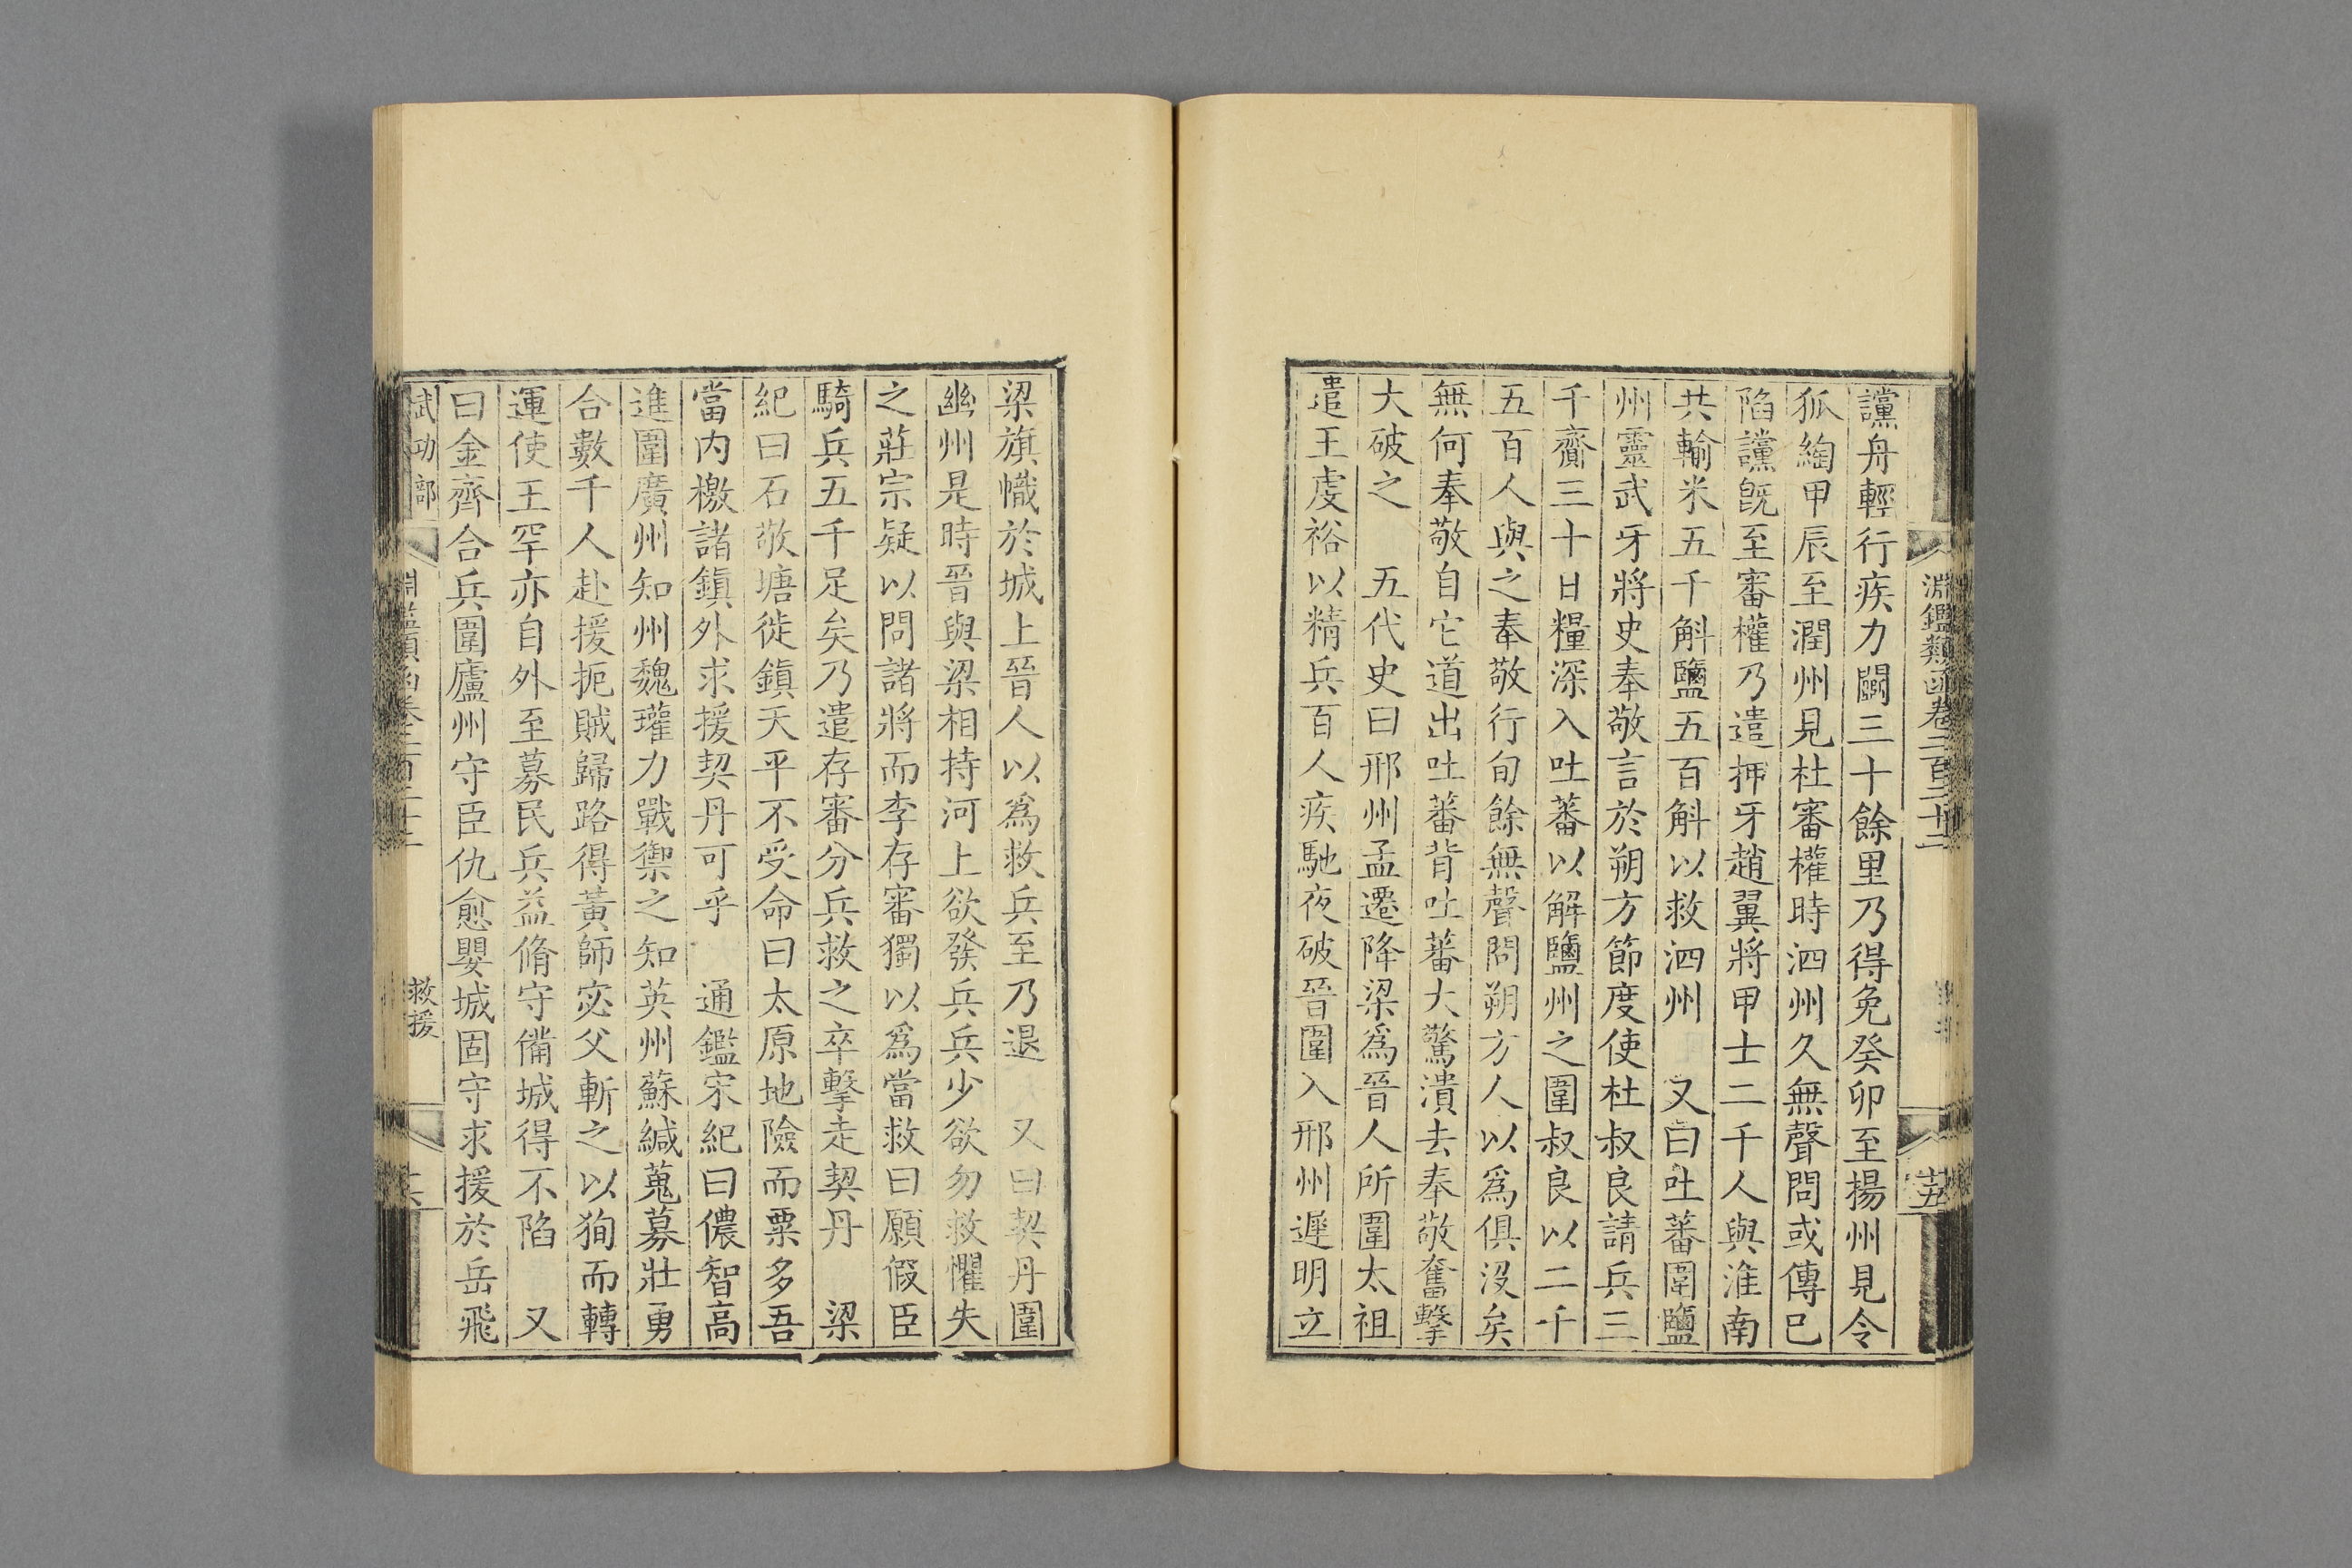 淵鑑類函卷二百二十二
十五
讜舟輕行疾力鬭三十餘里乃得免癸卯至揚州見令
狐綯甲辰至潤州見杜審權時泗州久無聲問或傳已
陷讜旣至審權乃遣押牙趙翼將甲士二千人與淮南
共輸米五千斛鹽五百斛以救泗州　又曰吐蕃圍鹽
州靈武牙將史奉敬言於朔方節度使杜叔良請兵三
千齎三十日糧深入吐蕃以解鹽州之圍叔良以二千
五百人與之奉敬行旬餘無聲問朔方人以爲俱沒矣
無何奉敬自它道出吐蕃背吐蕃大驚潰去奉敬奮擊
大破之　五代史曰邢州孟遷降梁爲晉人所圍太祖
遣王虔裕以精兵百人疾馳夜破晉圍入邢州遲明立
梁旗幟於城上晉人以爲救兵至乃退　又曰契丹圍
幽州是時晉與梁相持河上欲發兵兵少欲勿救懼失
之莊宗疑以問諸將而李存審獨以爲當救曰願假臣
騎兵五千足矣乃遣存審分兵救之卒擊走契丹　梁
紀曰石敬塘徙鎮天平不受命曰太原地險而粟多吾
當內檄諸鎮外求援契丹可乎　通鑑宋紀曰儂智高
進圍廣州知州魏瓘力戰禦之知英州蘇緘蒐募壯勇
合數千人赴援扼賊歸路得黃師宓父斬之以狥而轉
運使王罕亦自外至募民兵益脩守備城得不陷　又
曰金齊合兵圍廬州守臣仇悆嬰城固守求援於岳飛
武功部
救援